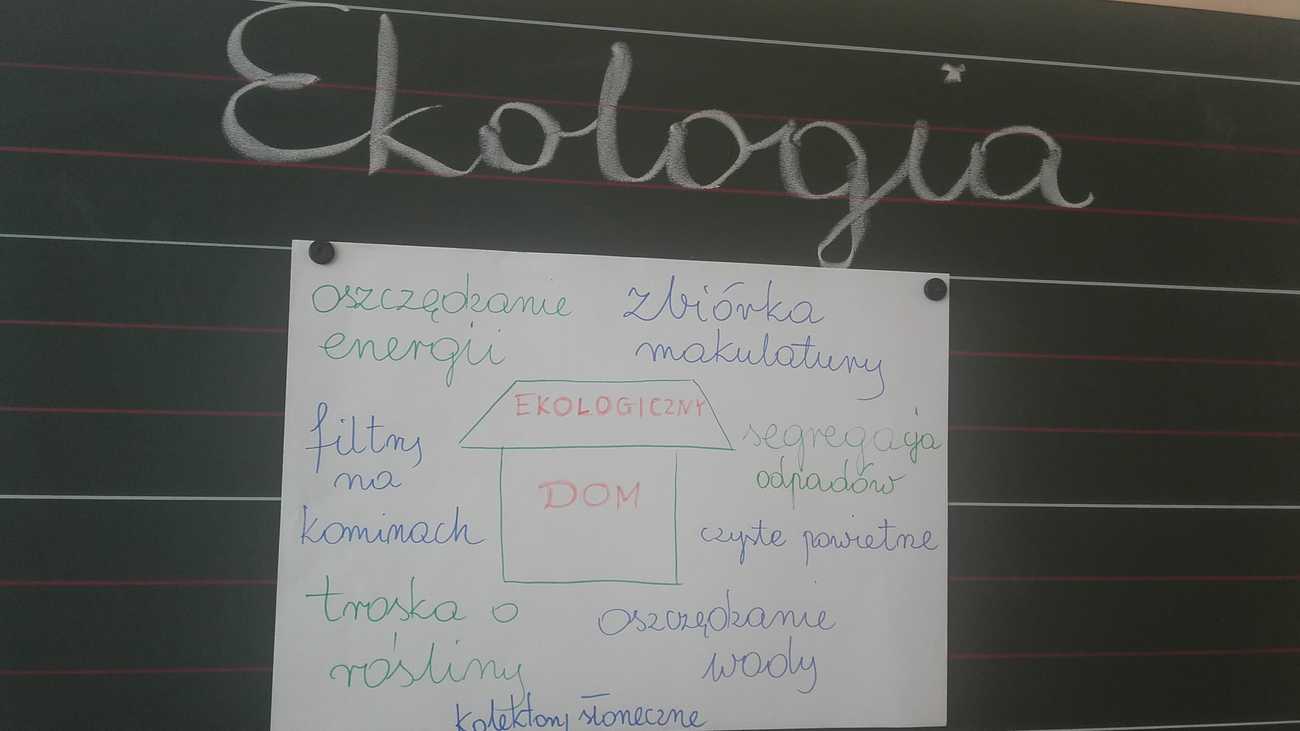 Ekologia
oszczędzanie
energii
zbiórka
makulatury
EKOLOGICZNY
DOM
filtry
na
kominach
segregacja
odpadów
czyste powietrze
troska o
rośliny
oszczędzanie
wody
kolektory słoneczne